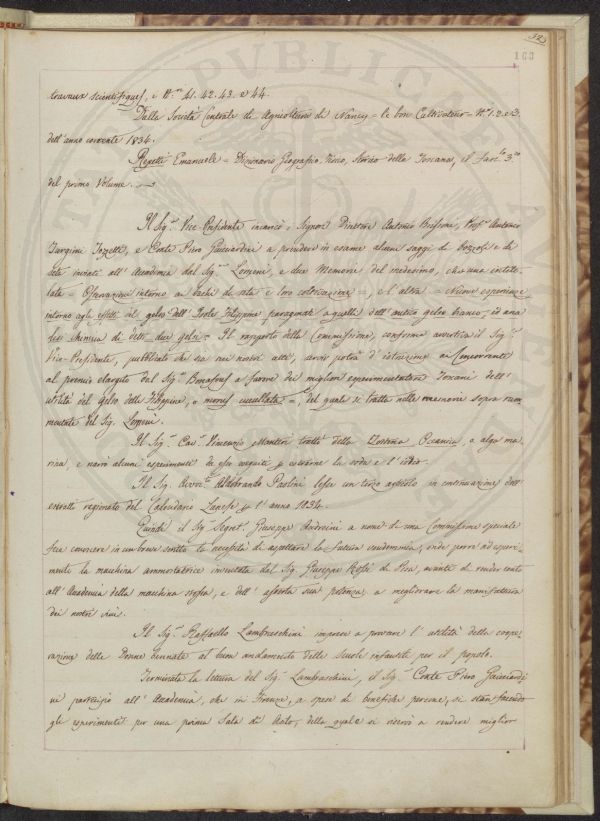 323
160
travaux scientifiques, e N.ri 41. 42. 43. e 44.
Dalla Società Centrale di Agricoltura di Nancy = le bon Cultivateur = N.ri 1. 2. e 3.
dell'anno corrente 1834.
Repetti Emanuele = Dizionario Geografico, Fisico, Storico della Toscana, il Fasc.lo 3.zo
del primo Volume.
Il Sig.r Vice-Presidente incaricò i Signori Direttore Antonio Prof.r Antonio
Targioni Tozzetti, e Conte Piero Guicciardini a prendere in esame alcuni saggi di bozzoli e di
seta inviati all'Accademia dal Sig.r Lomeni, e due Memorie del medesimo, che una intito-
lata = Osservazioni intorno a' bachi da seta e loro coltivazione =, e l'altra = Nuove esperienze
intorno agli effetti del gelso dell'Isole Filippine paragonati a quelli dell'antico gelso bianco, ed ana
lisi chimica di detti due gelsi = Il rapporto della Commissione, conforme avvertica il Sig.r
Vice-Presidente, pubblicato che sia nei nostri atti, servir potrà d'istruzione ai Concorrenti
al premio elargito dal Sig.r Bonafous a favore dei migliori esperimentatori Toscani dell'
utilità del Gelso delle Filippine, o morus cucullata =, del quale si tratta nelle memorie sopra ram
mentate del Sig. Lomeni.
Il Sig.r Cav.r Vincenzio Manteri trattò della Zostera Oceanica, o alga ma-
rina, e narrò alcuni esperimenti da esso eseguiti p estrarne la soda e l'iodio.
Il Sig. Avv.to Aldobrando Paolini lesse un terzo articolo in continuazione dell'
estratto ragionato del Calendario Lunese p l'anno 1834.
Quindi il Sig. Segret.o Giuseppe Andreini a nome di una Commissione speciale
fece conoscere in un breve scritto la necessità di aspettare la futura vendemmia, onde porre ad esperi-
menti la macchina ammostatrice inventata dal Sig. Giuseppe Rossi di Pisa, avanti di render conto
all'Accademia della macchina stessa, e dell'asserta sua potenza a migliorare la manifattura
dei nostri vini.
Il Sig.r Raffaello Lambruschini imprese a provare l'utilità della coope-
razione delle Donne bennate al buon andamento delle Scuole infantili per il popolo.
Terminata la lettura del Sig.r Lambruschini, il Sig. Conte Piero Guicciardi
ni partecipò all'Accademia, che in Firenze, a spese di benefiche persone, si stan facendo
gli esperimenti per una prima Sala di Asilo, della quale si riserbò a rendere miglior